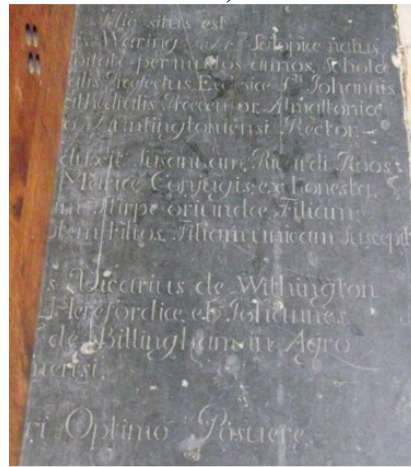 situs est
Waring Salopiæ natus
per multos annos, Scholæ
Præfectus, Ecclesiæ Sti. Johannis
Præcentor, Almattoniæ
Huntingtoniensi Rector
duxit Susannam, Ricardi Roos
Mariæ Conjugis ex honesta
Stirpe oriundæ Filiam,
Filios, Filiam unicam Suscepit
s Vicarius de Withington
Herefordiæ, et Johannes
de Billingham in Agro
ensi.
ri Optimo Posuere.